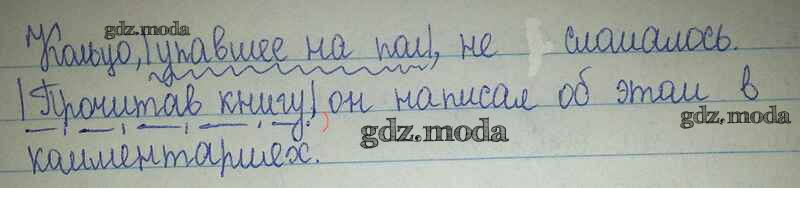 gdz.moda
Кольцо, |упавшее на пол|, не сломалось.
|Прочитав книгу,| он написал об этом в
gdz.moda gdz.moda
комментариях.